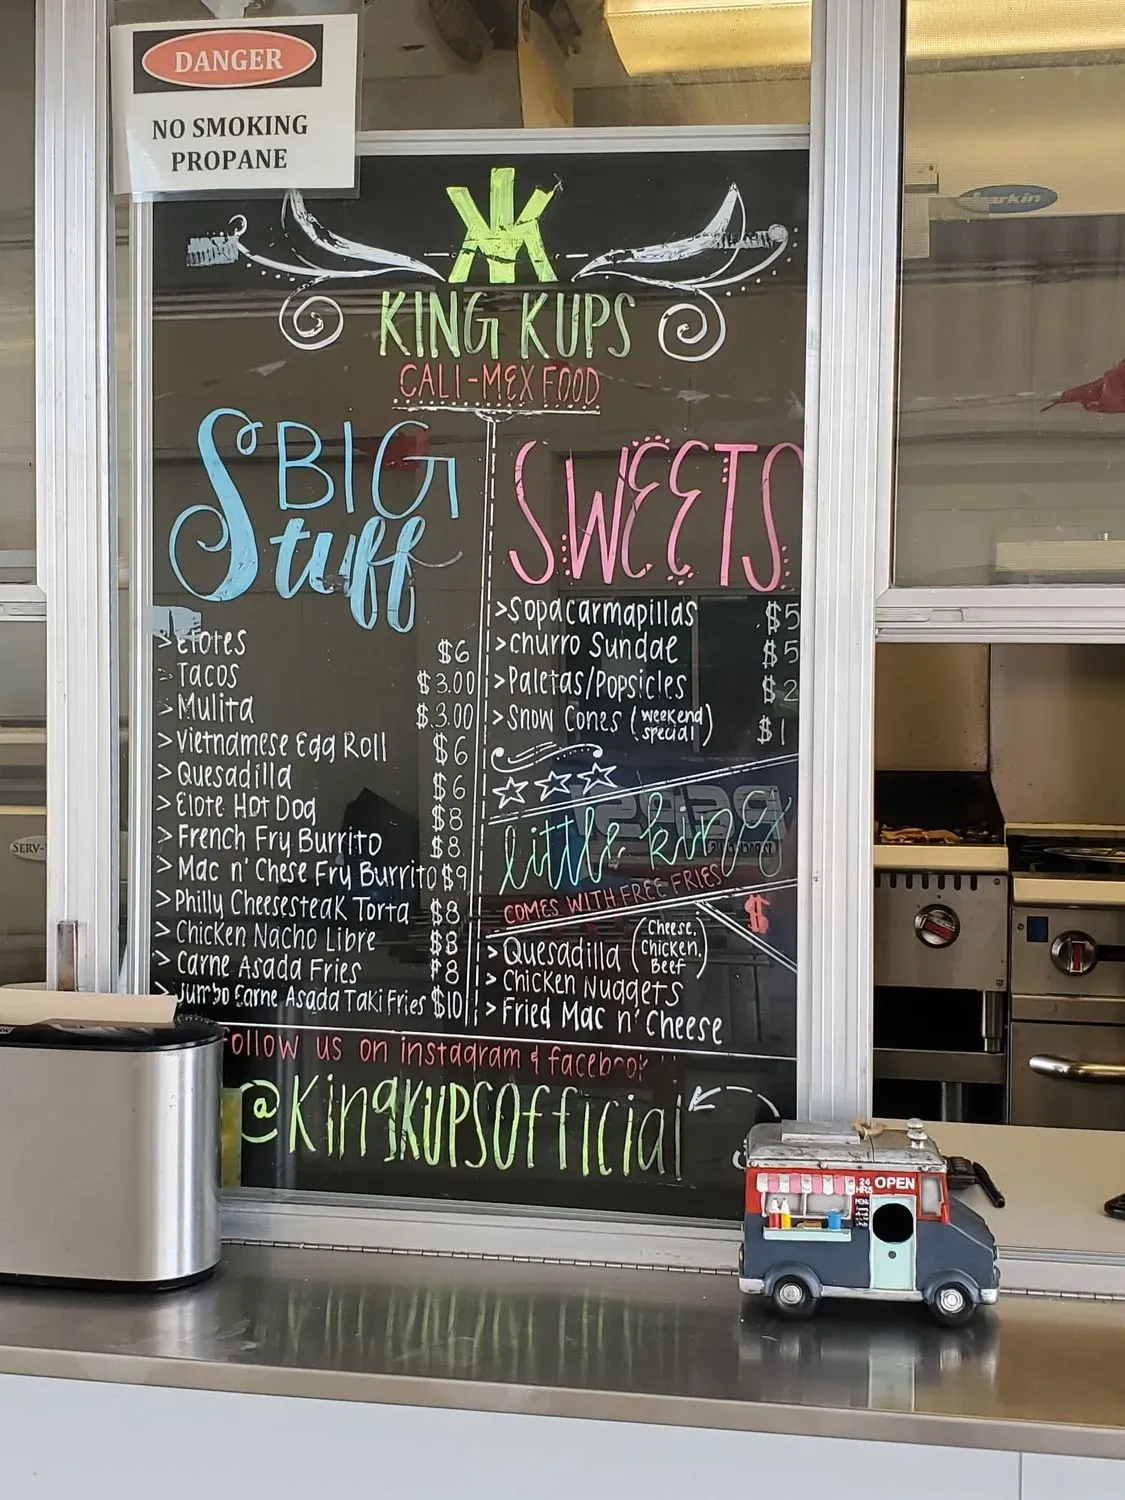 DANGER
NO SMOKING
PROPANE
KING KUPS
CALI-MEX FOOD
BIG
Stuff
> Elotes $6
> Tacos $3.00
> Mulita $3.00
> Vietnamese Egg Roll $6
> Quesadilla $6
> Elote Hot Dog $8
> French Fry Burrito $8
> Mac n' Chese Fry Burrito $9
> Philly Cheesesteak Torta $8
> Chicken Nacho Libre $8
> Carne Asada Fries $8
> Jumbo Carne Asada Taki Fries $10
SWEETS
> Sopacarmapillas $5
> Churro Sundae $5
> Paletas/Popsicles $2
> Snow Cones (weekend special) $1
little king
COMES WITH FREE FRIES
$
> Quesadilla (Cheese, Chicken, Beef)
> Chicken Nuggets
> Fried Mac n' Cheese
Follow us on instagram & facebook
@KingKupsOfficial
24
HRS OPEN
MENU
Larkin
SERV-